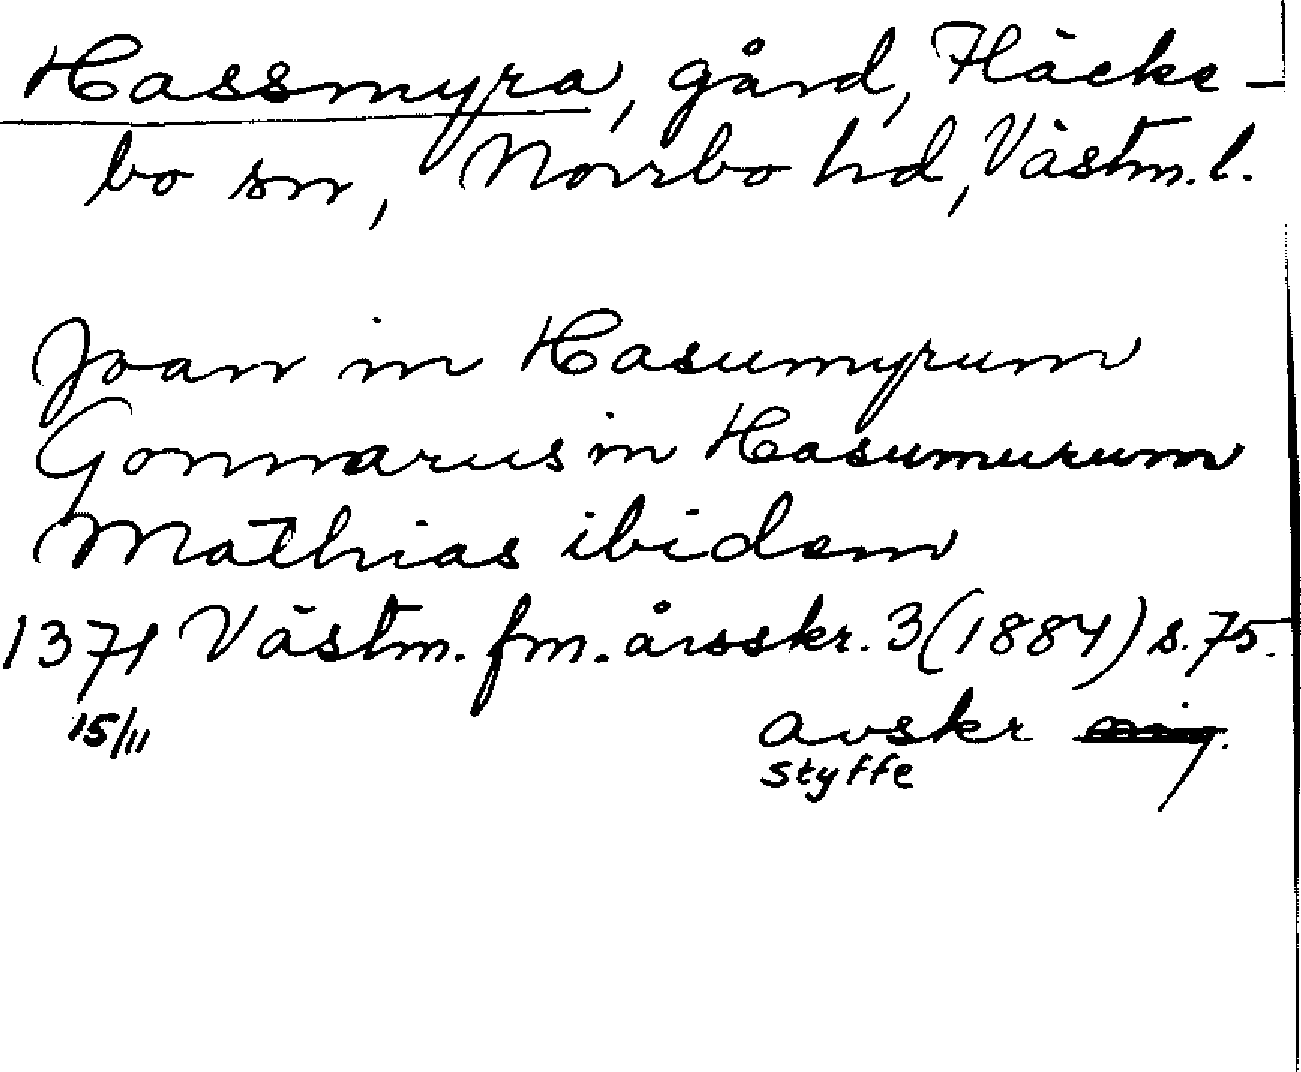 Hassmyra, gård, Fläcke-
bo sn, Norrbo hd, Västm. l.
Joan in Hasumyrum
Gonnarus in Hasumurum
Mathias ibidem
1371 Västm. fm. årsskr. 3 (1884) s. 75.
15/11 avskr
Styffe